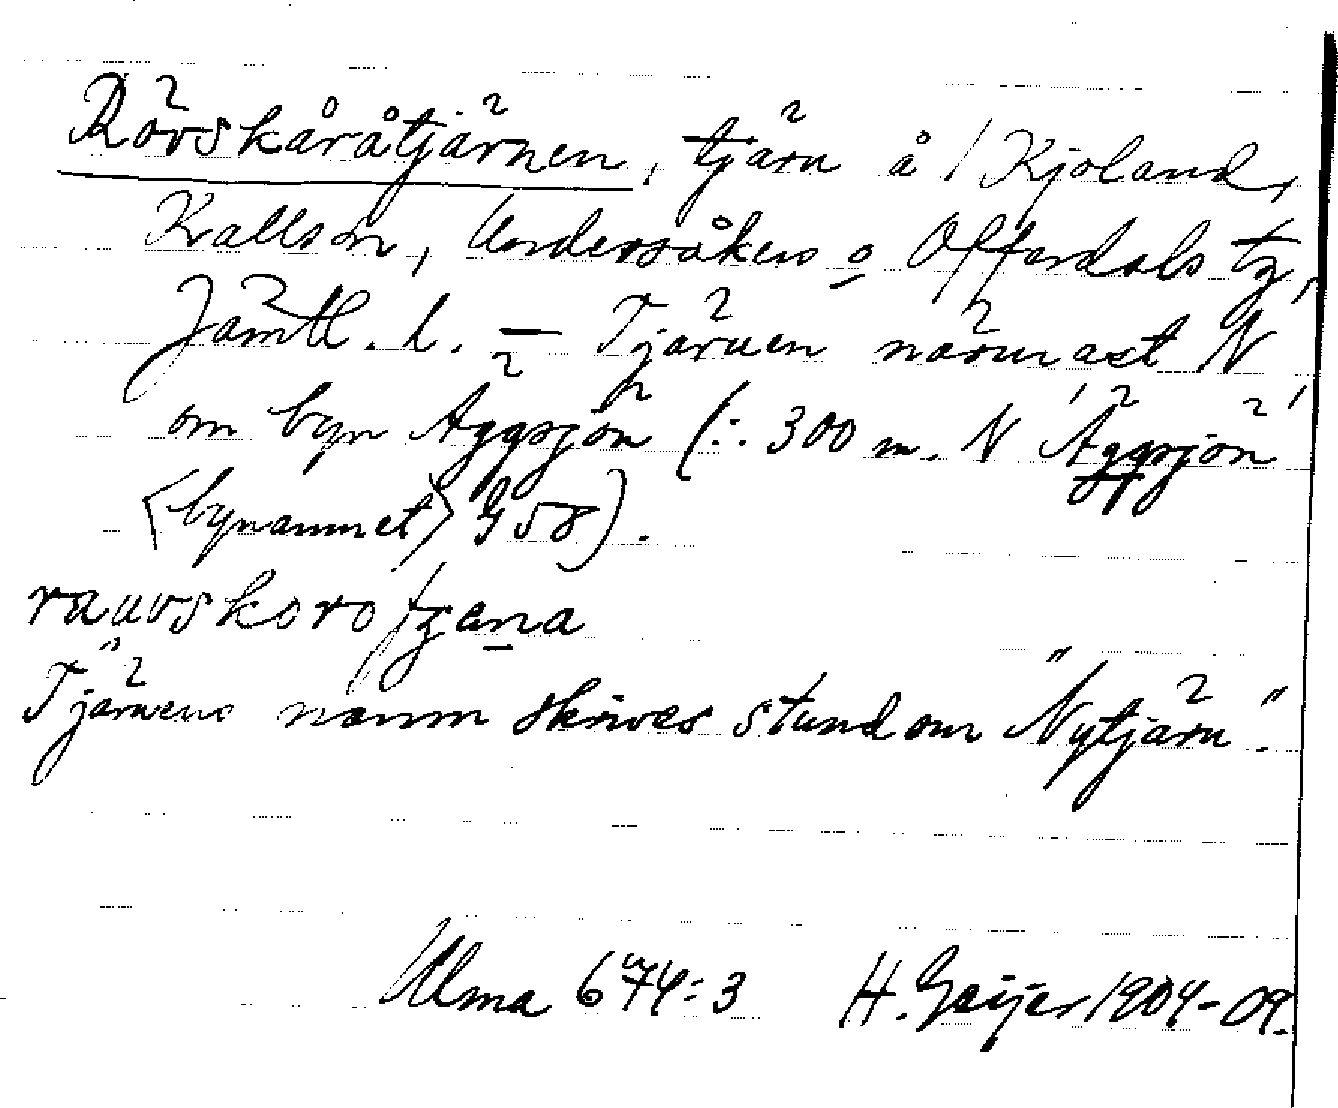 Rövskåråtjärnen, tjärn å /Kjoland,
Kallsn, Undersåkers o Offerdals tg,
Jämtl. l. — Tjärnen närmast N
om byn Äggsjön (: 300 m. N 'Äggsjön'
<bynamnet> G58).
Tjärnens namn skrives stundom "Nytjärn".
Ulma 674:3 H. Geijer 1904-09.